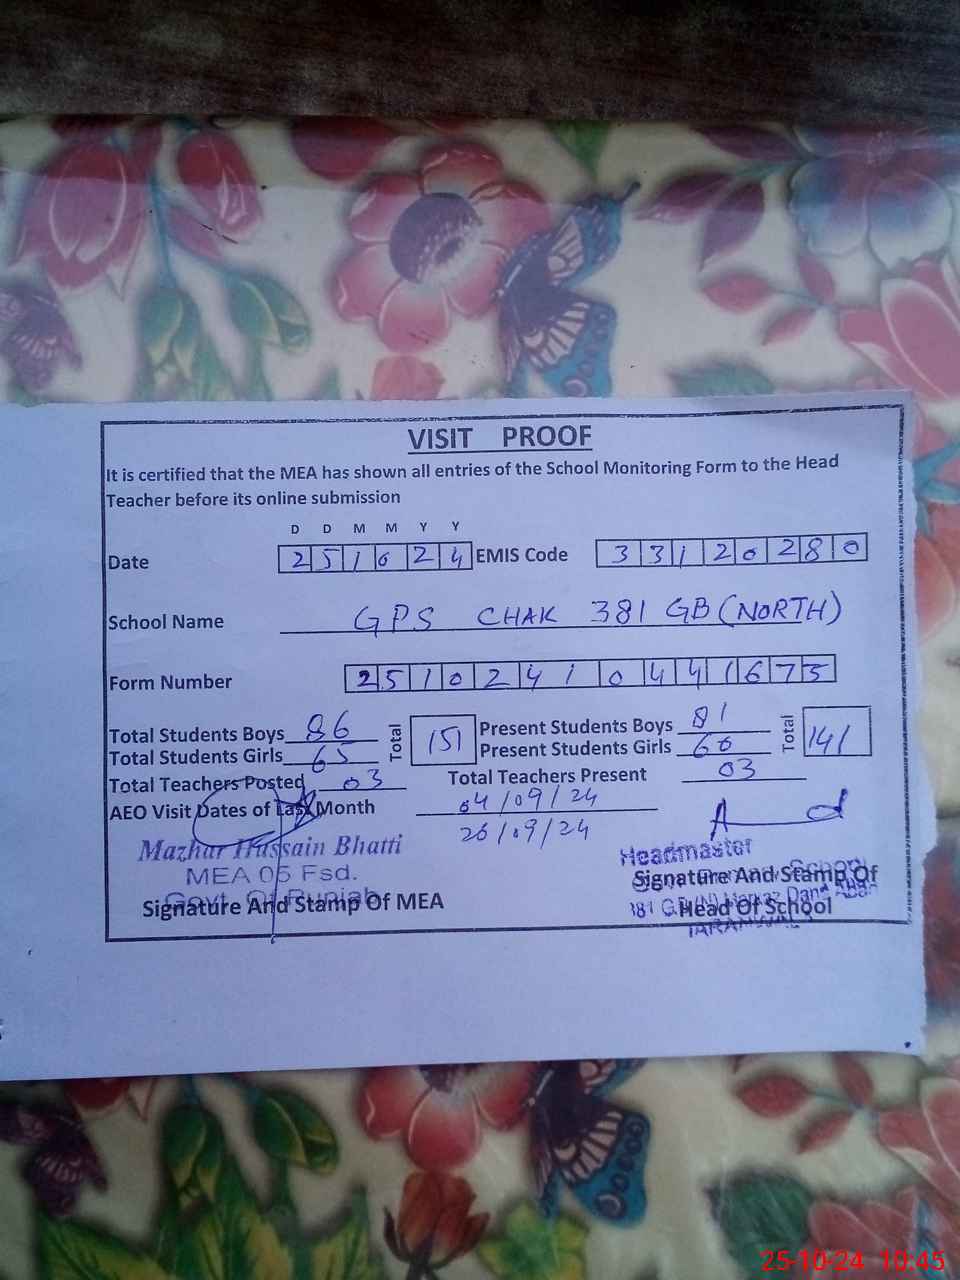 VISIT PROOF
It is certified that the MEA has shown all entries of the School Monitoring Form to the Head
Teacher before its online submission
D D M M Y Y
Date 251024 EMIS Code 33120280
School Name GPS CHAK 381 GB (NORTH)
Form Number 25102410441675
Total Students Boys 86 Total 151 Present Students Boys 81 Total 141
Total Students Girls 65 Present Students Girls 60
Total Teachers Posted 03 Total Teachers Present 03
AEO Visit Dates of Last Month 04/09/24
26/09/24
Mazhar Hussain Bhatti
MEA 05 Fsd.
Govt. Of Punjab
Signature And Stamp Of MEA
Headmaster
Signature And Stamp Of
Head Of School
25-10-24 10:45